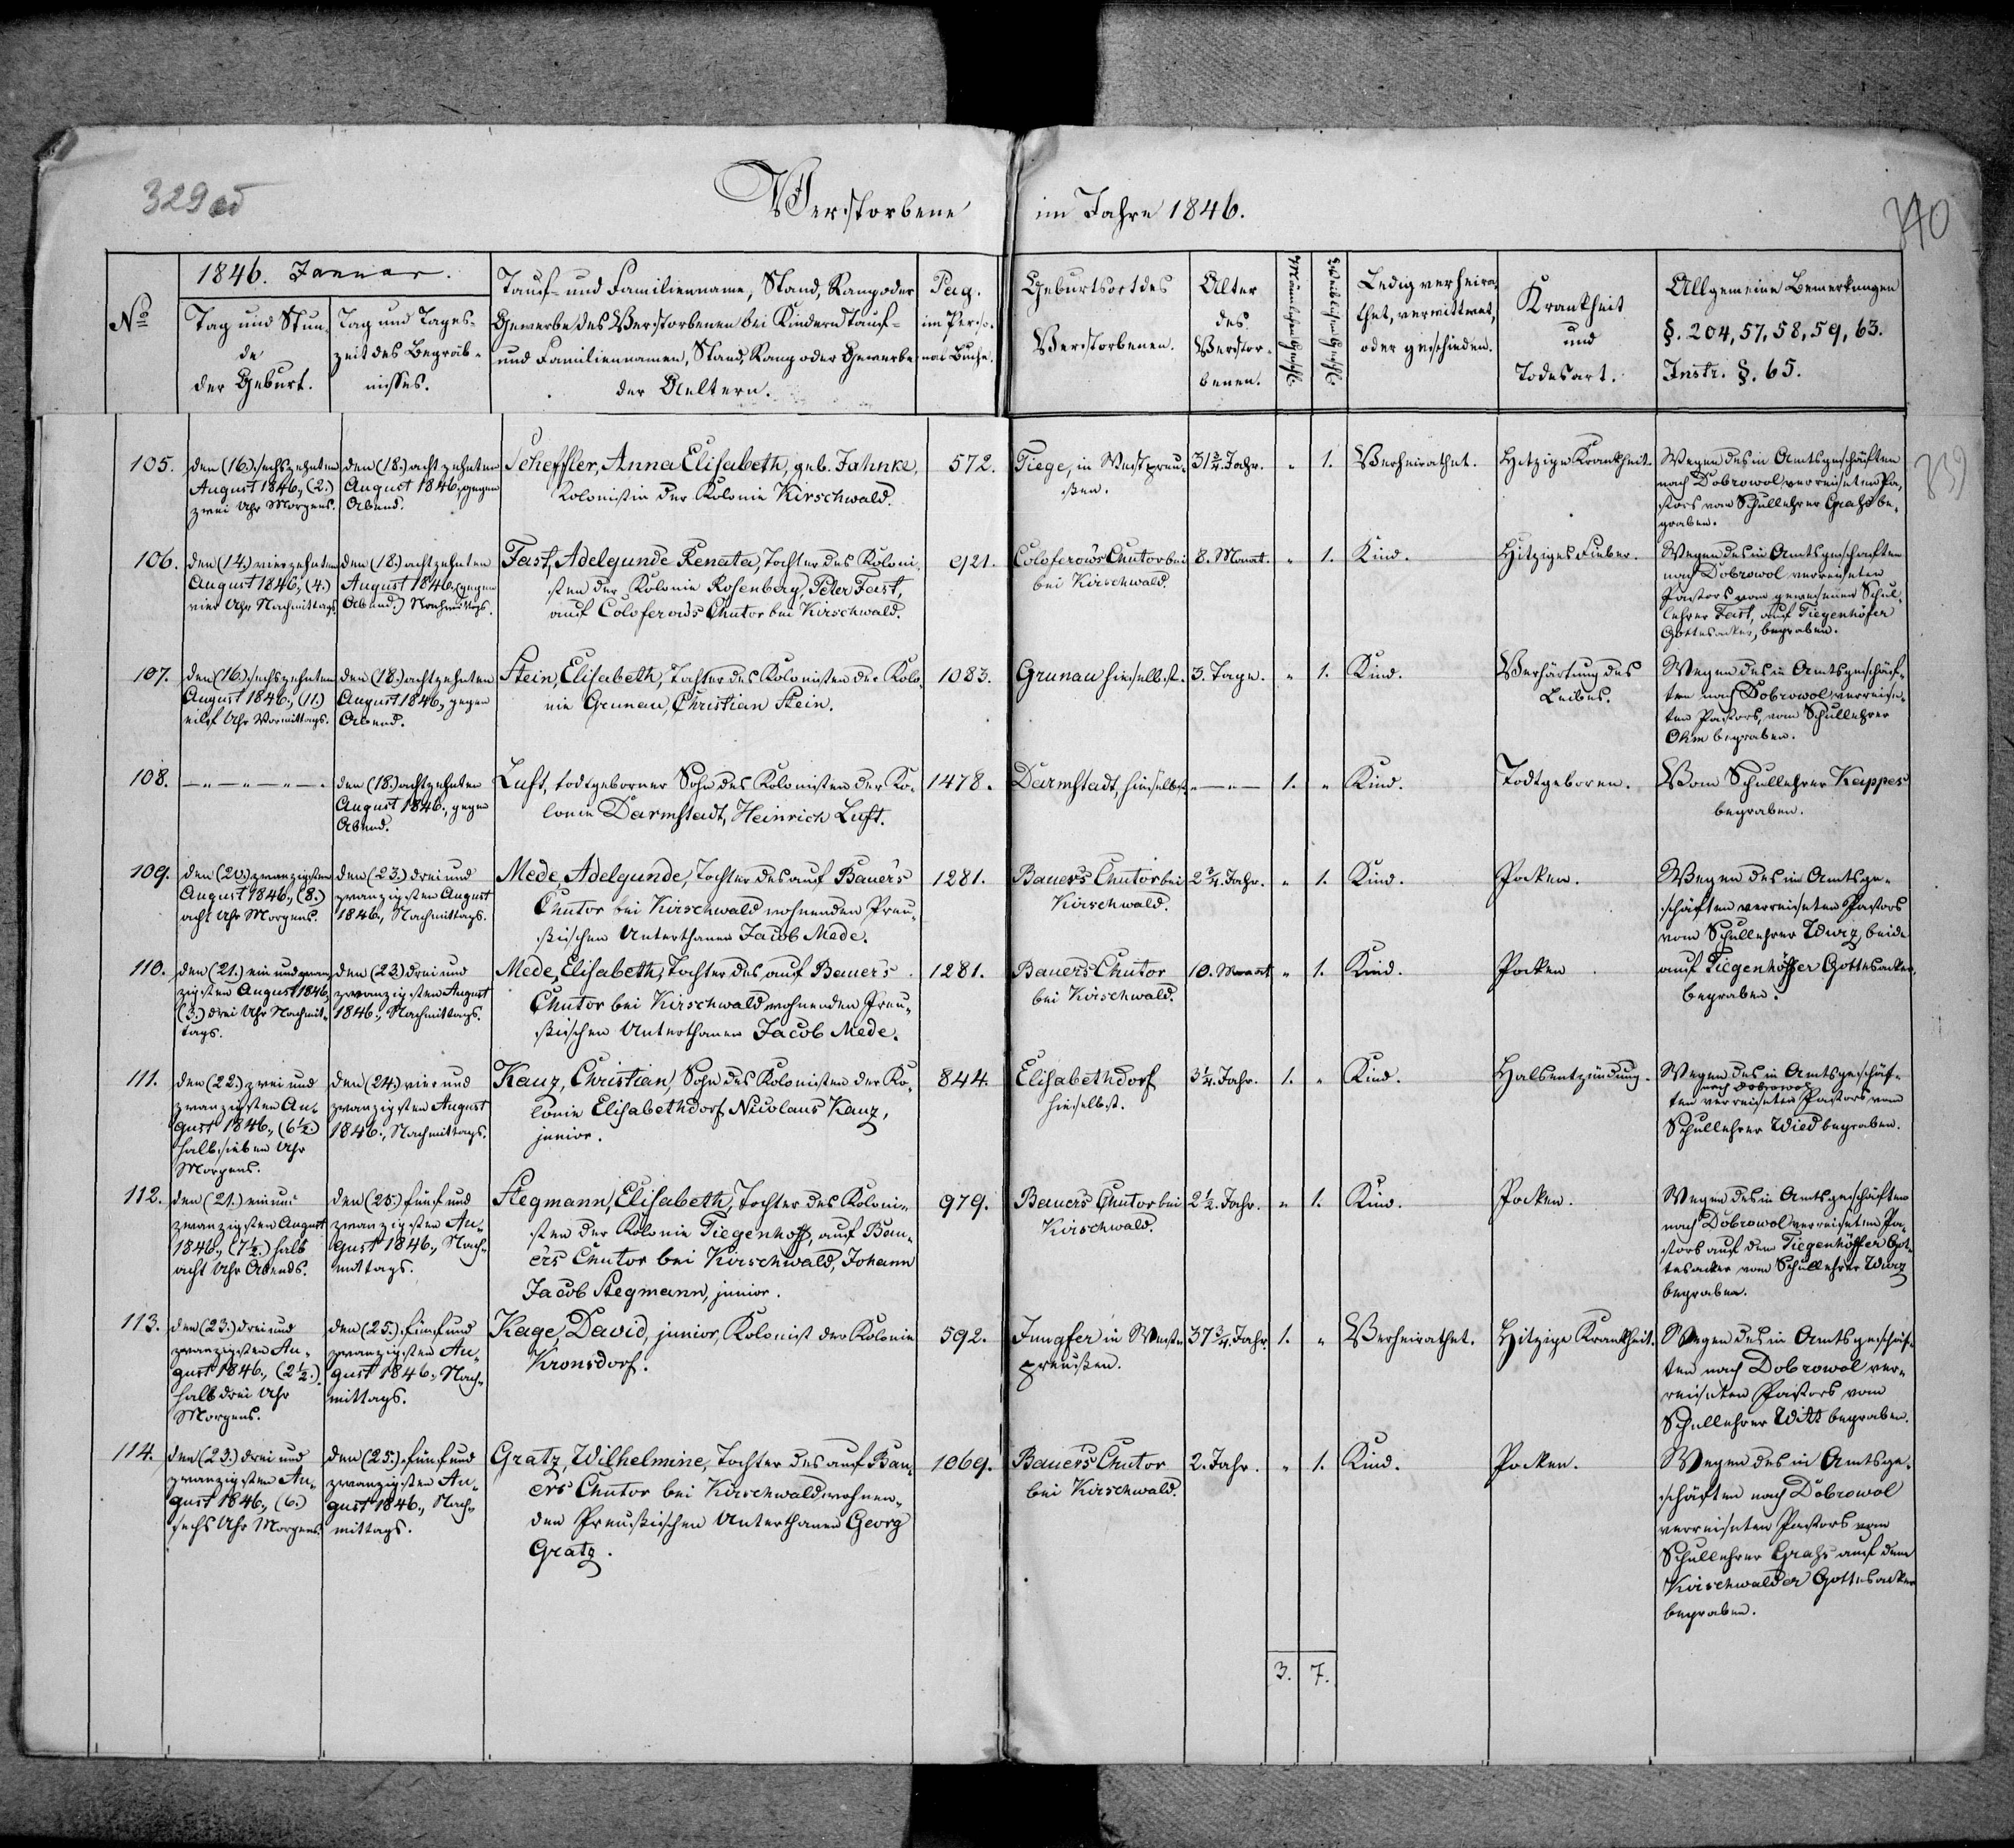 329 об
340
339
Verstorbene im Jahre 1846.
No
1846. Januar.
Tag und Stun-
de
der Geburt.
Tag und Tages-
zeit des Begräb-
nisses.
Tauf- und Familienname, Stand, Rang oder
Gewerbe des Verstorbenen bei Kindern Tauf-
und Familiennamen, Stand, Rang oder Gewerbe
der Aeltern.
Pag.
im Perso-
nal Buche.
Geburtsort des
Verstorbenen.
Alter
des
Verstor-
benen.
Männlichen Geschl.
Weiblichen Geschl.
Ledig verheira-
thet, verwittwet,
oder geschieden.
Krankheit
und
Todesart.
Allgemeine Bemerkungen
§. 204, 57, 58, 59, 63.
Instr. §. 65.
105.
den (16.) sechszehnten
August 1846., (2.)
zwei Uhr Morgens.
den (18.) achtzehnten
August 1846., gegen
Abend.
Scheffler, Anna Elisabeth, geb. Jahnke,
Kolonistin der Kolonie Kirschwald.
572.
Tiege, in Westpreu-
ßen.
31 3/4. Jahr.
" 1.
Verheirathet.
Hitzige Krankheit.
Wegen des in Amtsgeschäften
nach Dobrowol verreisten Pa-
stors vom Schullehrer Grahs be-
graben.
106.
den (14.) vierzehnten
August 1846., (4.)
vier Uhr Nachmittags
den (18.) achtzehnten
August 1846., (gegen
Abend.) Nachmittags.
Fast, Adelgunde Renata, Tochter des Koloni-
sten der Kolonie Rosenberg, Peter Fast,
auf Coloferows Chutor bei Kirschwald.
921.
Coloferows Chutor bei
bei Kirschwald.
8. Monat.
" 1.
Kind.
Hitziges Fieber.
Wegen des in Amtsgeschäften
nach Dobrowol verreisten
Pastors vom gewesenen Schul-
lehrer Fast, auf Tiegenhöfer
Gottesacker, begraben.
107.
den (16.) sechszehnten
August 1846., (11.)
eilf Uhr Vormittags.
den (18.) achtzehnten
August 1846., gegen
Abend.
Stein, Elisabeth, Tochter des Kolonisten der Kolo-
nie Grunau, Christian Stein.
1083.
Grunau hieselbst.
3. Tage.
" 1.
Kind.
Verhärtung des
Leibes.
Wegen des in Amtsgeschäf-
ten nach Dobrowol verreis-
ten Pastors, vom Schullehrer
Ohm begraben.
108.
— " — " — " — .
den (18.) achtzehnten
August 1846., gegen
Abend.
Luft, todtgeborner Sohn des Kolonisten der Ko-
lonie Darmstadt, Heinrich Luft.
1478.
Darmstadt, hieselbst.
— " —
1. "
Kind.
Todtgeboren.
Vom Schullehrer Kappes
begraben.
109.
den (20.) zwanzigsten
August 1846., (8.)
acht Uhr Morgens.
den (23.) drei und
zwanzigsten August
1846., Nachmittags.
Mede, Adelgunde, Tochter des auf Bauers
Chutor bei Kirschwald wohnenden Preu-
ßischen Unterthanen Jacob Mede.
1281.
Bauers Chutor bei
Kirschwald.
2 3/4. Jahr.
" 1.
Kind.
Pocken.
Wegen des in Amtsge-
schäften verreisten Pastors
vom Schullehrer Wurz, beide
auf Tiegenhöffer Gottesacker
begraben.
110.
den (21.) ein und zwan-
zigsten August 1846.,
(3.) drei Uhr Nachmit-
tags.
den (23.) drei und
zwanzigsten August
1846., Nachmittags.
Mede, Elisabeth, Tochter des auf Bauers
Chutor bei Kirschwald wohnenden Preu-
ßischen Unterthanen Jacob Mede.
1281.
Bauers Chutor
bei Kirschwald.
10. Monat
" 1.
Kind.
Pocken
111.
den (22.) zwei und
zwanzigsten Au-
gust 1846., (6 1/2.)
halb sieben Uhr
Morgens.
den (24.) vier und
zwanzigsten August
1846., Nachmittags.
Kauz, Christian, Sohn des Kolonisten der Ko-
lonie Elisabethdorf Nicolaus Kauz,
junior.
844.
Elisabethdorf
hieselbst.
3 1/4. Jahr.
1. "
Kind.
Halsentzündung.
Wegen des in Amtsgeschäf-
nach Dobrowol
ten verreisten Pastors vom
Schullehrer Wied begraben.
112.
den (21.) ein und
zwanzigsten August
1846., (7 1/2.) halb
acht Uhr Abends.
den (25.) fünf und
zwanzigsten Au-
gust 1846., Nach-
mittags.
Stegmann, Elisabeth, Tochter des Koloni-
sten der Kolonie Tiegenhoff, auf Bau-
ers Chutor bei Kirschwald, Johann
Jacob Stegmann, junior.
979.
Bauers Chutor bei
Kirschwald.
2 1/2. Jahr.
" 1.
Kind.
Pocken.
Wegen des in Amtsgeschäften
nach Dobrowol verreisten Pa-
stors auf dem Tiegenhöffer Got-
tesacker vom Schullehrer Wurz
begraben.
113.
den (23.) drei und
zwanzigsten Au-
gust 1846., (2 1/2.)
halb drei Uhr
Morgens.
den (25.) fünf und
zwanzigsten Au-
gust 1846., Nach-
mittags.
Kage, David, junior, Kolonist der Kolonie
Kronsdorf.
592.
Jungfer in West-
preußen.
37 3/4. Jahr.
1. "
Verheirathet.
Hitzige Krankheit.
Wegen des in Amtsgeschäf-
ten nach Dobrowol ver-
reisten Pastors vom
Schullehrer Witt begraben.
114.
den (23.) drei und
zwanzigsten Au-
gust 1846., (6.)
sechs Uhr Morgens
den (25.) fünf und
zwanzigsten Au-
gust 1846., Nach-
mittags.
Gratz, Wilhelmine, Tochter des auf Bau-
ers Chutor bei Kirschwald wohnen-
den Preußischen Unterthanen Georg
Gratz.
1069.
Bauers Chutor
bei Kirschwald
2. Jahr.
" 1.
Kind.
Pocken.
Wegen des in Amtsge-
schäften nach Dobrowol
verreisten Pastors vom
Schullehrer Grahs auf dem
Kirschwalder Gottesacker
begraben.
3. 7.